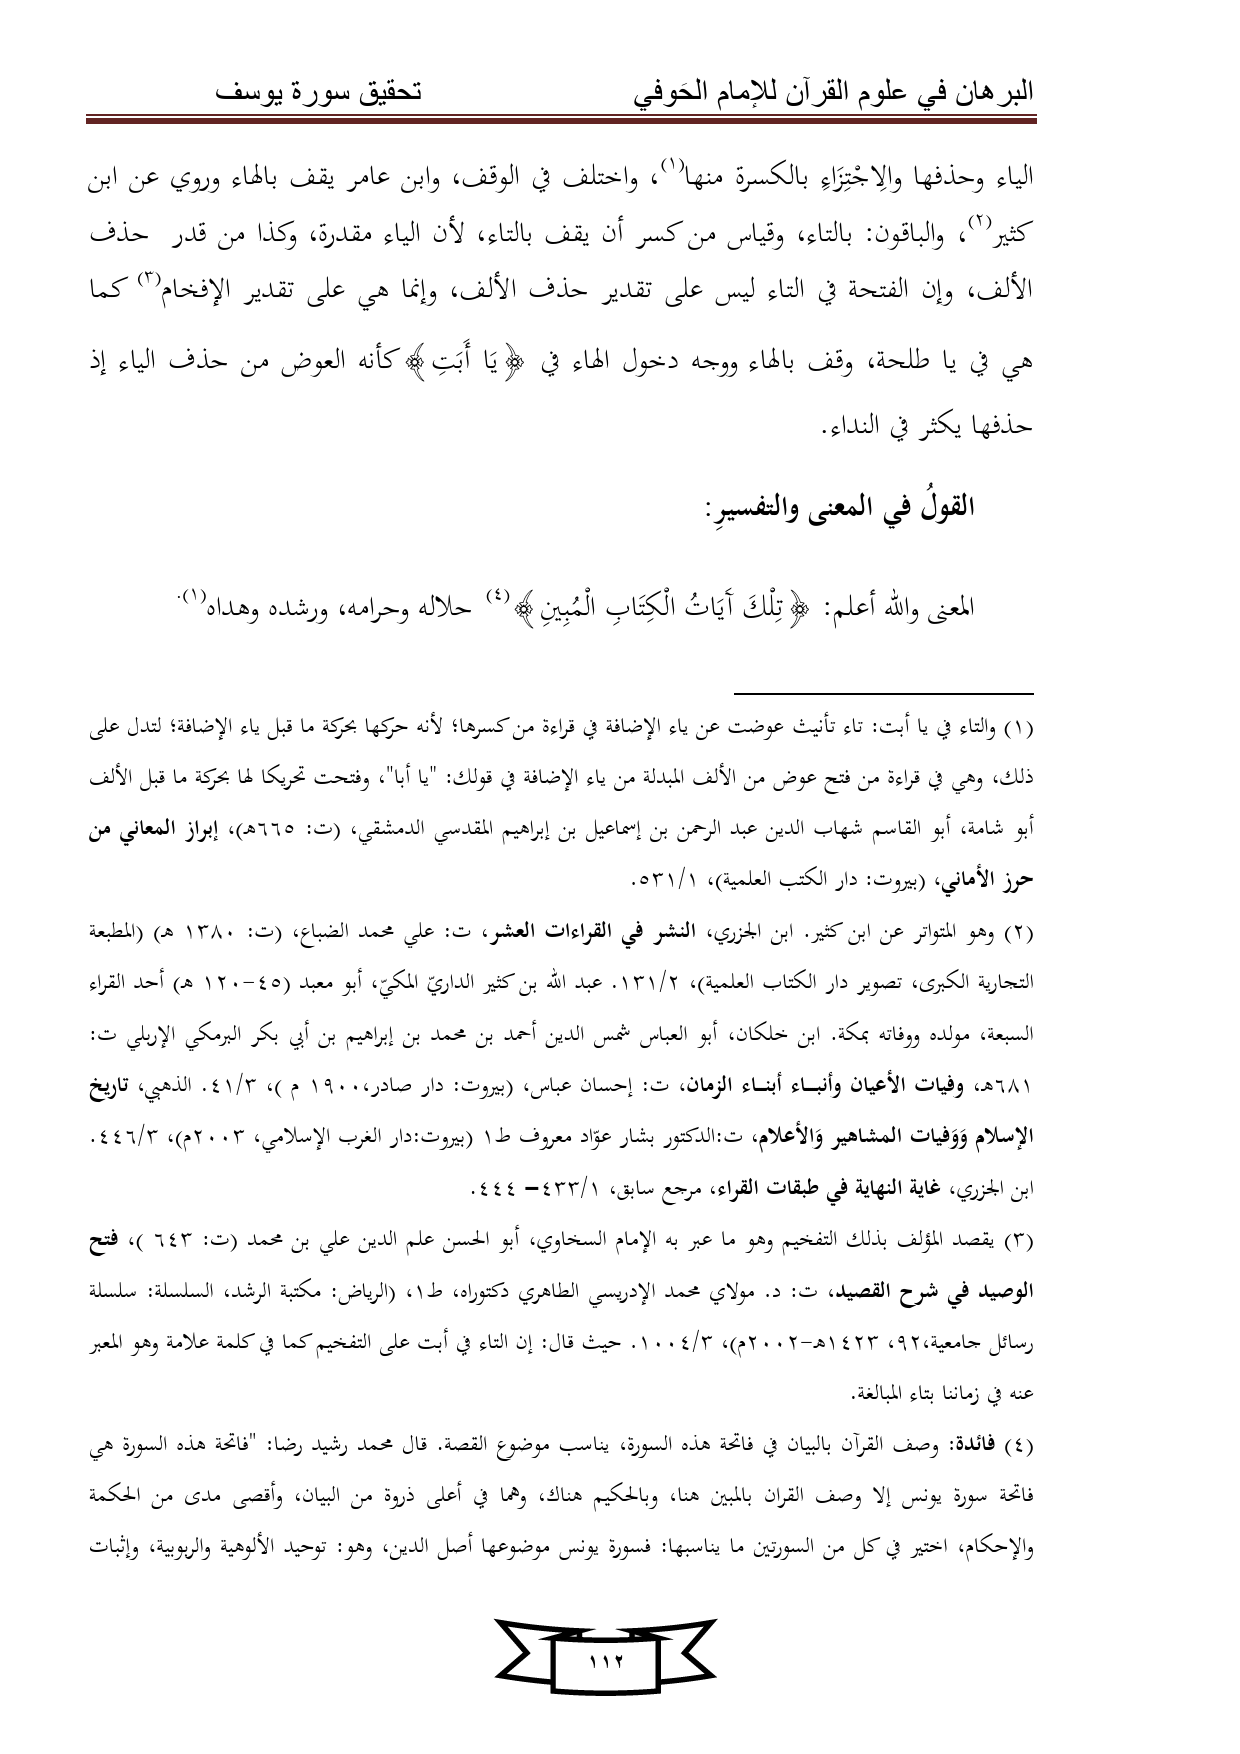 البرهان في علوم القرآن للإمام الحَوفي تحقيق سورة يوسف
الياء وحذفها والِاجْتِزَاءِ بالكسرة منها(١)، واختلف في الوقف، وابن عامر يقف بالهاء وروي عن ابن
كثير(٢)، والباقون: بالتاء، وقياس من كسر أن يقف بالتاء، لأن الياء مقدرة، وكذا من قدر حذف
الألف، وإن الفتحة في التاء ليس على تقدير حذف الألف، وإنما هي على تقدير الإفخام(٣) كما
هي في يا طلحة، وقف بالهاء ووجه دخول الهاء في ﴿يَا أَبَتِ﴾ كأنه العوض من حذف الياء إذ
حذفها يكثر في النداء.
القولُ في المعنى والتفسيرِ:
المعنى والله أعلم: ﴿تِلْكَ آَيَاتُ الْكِتَابِ الْمُبِينِ﴾(٤) حلاله وحرامه، ورشده وهداه(١).
(١) والتاء في يا أبت: تاء تأنيث عوضت عن ياء الإضافة في قراءة من كسرها؛ لأنه حركها بحركة ما قبل ياء الإضافة؛ لتدل على
ذلك، وهي في قراءة من فتح عوض من الألف المبدلة من ياء الإضافة في قولك: "يا أبا"، وفتحت تحريكا لها بحركة ما قبل الألف
أبو شامة، أبو القاسم شهاب الدين عبد الرحمن بن إسماعيل بن إبراهيم المقدسي الدمشقي، (ت: ٦٦٥هـ)، إبراز المعاني من
حرز الأماني، (بيروت: دار الكتب العلمية)، ٥٣١/١.
(٢) وهو المتواتر عن ابن كثير. ابن الجزري، النشر في القراءات العشر، ت: علي محمد الضباع، (ت: ١٣٨٠ هـ) (المطبعة
التجارية الكبرى، تصوير دار الكتاب العلمية)، ١٣١/٢. عبد الله بن كثير الداريّ المكيّ، أبو معبد (٤٥-١٢٠ هـ) أحد القراء
السبعة، مولده ووفاته بمكة. ابن خلكان، أبو العباس شمس الدين أحمد بن محمد بن إبراهيم بن أبي بكر البرمكي الإربلي ت:
٦٨١هـ، وفيات الأعيان وأنبـاء أبنـاء الزمان، ت: إحسان عباس، (بيروت: دار صادر،١٩٠٠ م )، ٤١/٣. الذهبي، تاريخ
الإسلام وَوَفيات المشاهير وَالأعلام، ت:الدكتور بشار عوّاد معروف ط١ (بيروت:دار الغرب الإسلامي، ٢٠٠٣م)، ٤٤٦/٣.
ابن الجزري، غاية النهاية في طبقات القراء، مرجع سابق، ٤٣٣/١– ٤٤٤.
(٣) يقصد المؤلف بذلك التفخيم وهو ما عبر به الإمام السخاوي، أبو الحسن علم الدين علي بن محمد (ت: ٦٤٣ )، فتح
الوصيد في شرح القصيد، ت: د. مولاي محمد الإدريسي الطاهري دكتوراه، ط١، (الرياض: مكتبة الرشد، السلسلة: سلسلة
رسائل جامعية،٩٢، ١٤٢٣هـ-٢٠٠٢م)، ١٠٠٤/٣. حيث قال: إن التاء في أبت على التفخيم كما في كلمة علامة وهو المعبر
عنه في زماننا بتاء المبالغة.
(٤) فائدة: وصف القرآن بالبيان في فاتحة هذه السورة، يناسب موضوع القصة. قال محمد رشيد رضا: "فاتحة هذه السورة هي
فاتحة سورة يونس إلا وصف القران بالمبين هنا، وبالحكيم هناك، وهما في أعلى ذروة من البيان، وأقصى مدى من الحكمة
والإحكام، اختير في كل من السورتين ما يناسبها: فسورة يونس موضوعها أصل الدين، وهو: توحيد الألوهية والربوبية، وإثبات
١١٢